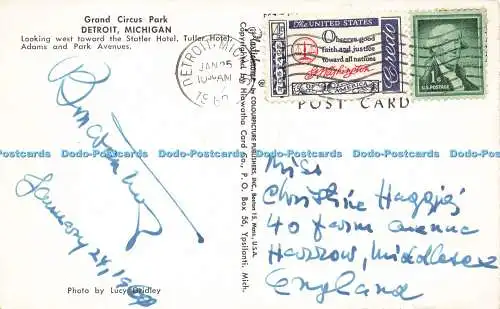 Grand Circus Park
DETROIT, MICHIGAN
Looking west toward the Statler Hotel, Tuller Hotel,
Adams and Park Avenues.
January 24, 1960
Photo by Lucy Bridley
Plastichrome ® by COLOURPICTURE PUBLISHERS, INC., Boston 15, Mass., U.S.A.
Copyrighted by Hiawatha Card Co., P. O. Box 56, Ypsilanti, Mich.
DETROIT, MICH
JAN 25
AM
1960
THE UNITED STATES
Observe good
faith and justice
toward all nations
G. Washington
Credo
1¢
U.S. POSTAGE
POST CARD
Miss
Christine
40 Farm Avenue
Harrow, Middlesex
England
Dodo-Postcards Dodo-Postcards Dodo-Postcards Dodo-Postcards